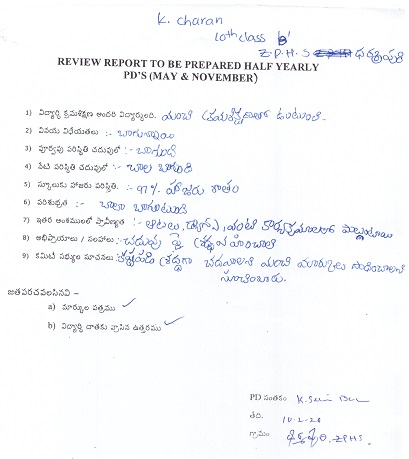 K. Charan
10th class 'B'
Z.P.H.S ధర్మపురి
REVIEW REPORT TO BE PREPARED HALF YEARLY
PD'S (MAY & NOVEMBER)
1) విద్యార్థి క్రమశిక్షణ అందరి విద్యార్థులతో. మంచి క్రమశిక్షణతో ఉంటుంది.
2) వినయ విధేయతలు :- బాగున్నాయి
3) పూర్వపు పరిస్థితి చదువులో :- బాగుంది
4) నేటి పరిస్థితి చదువులో :- చాల బాగుంది
5) స్కూలుకు హాజరు పరిస్థితి. :- 97% హాజరు శాతం
6) పరిశుభ్రత :- చాలా బాగుంటుంది
7) ఇతర అంశములలో ప్రావీణ్యత :- ఆటలు, డ్యాన్స్, వంటి కార్యక్రమాలలో పాల్గొంటాయి
8) అభిప్రాయాలు / సలహాలు :- చదువు పై శ్రద్ధ వహించాలి
9) కమిటీ సభ్యుల సూచనలు :- కష్టపడి శ్రద్ధగా చదవాలని మంచి మార్కులు సాధించాలని
సూచించారు.
జతపరచవలసినవి –
a) మార్కుల పత్రము ✓
b) విద్యార్థి దాతకు వ్రాసిన ఉత్తరము ✓
PD సంతకం K.
తేది.
గ్రామం ZPHS